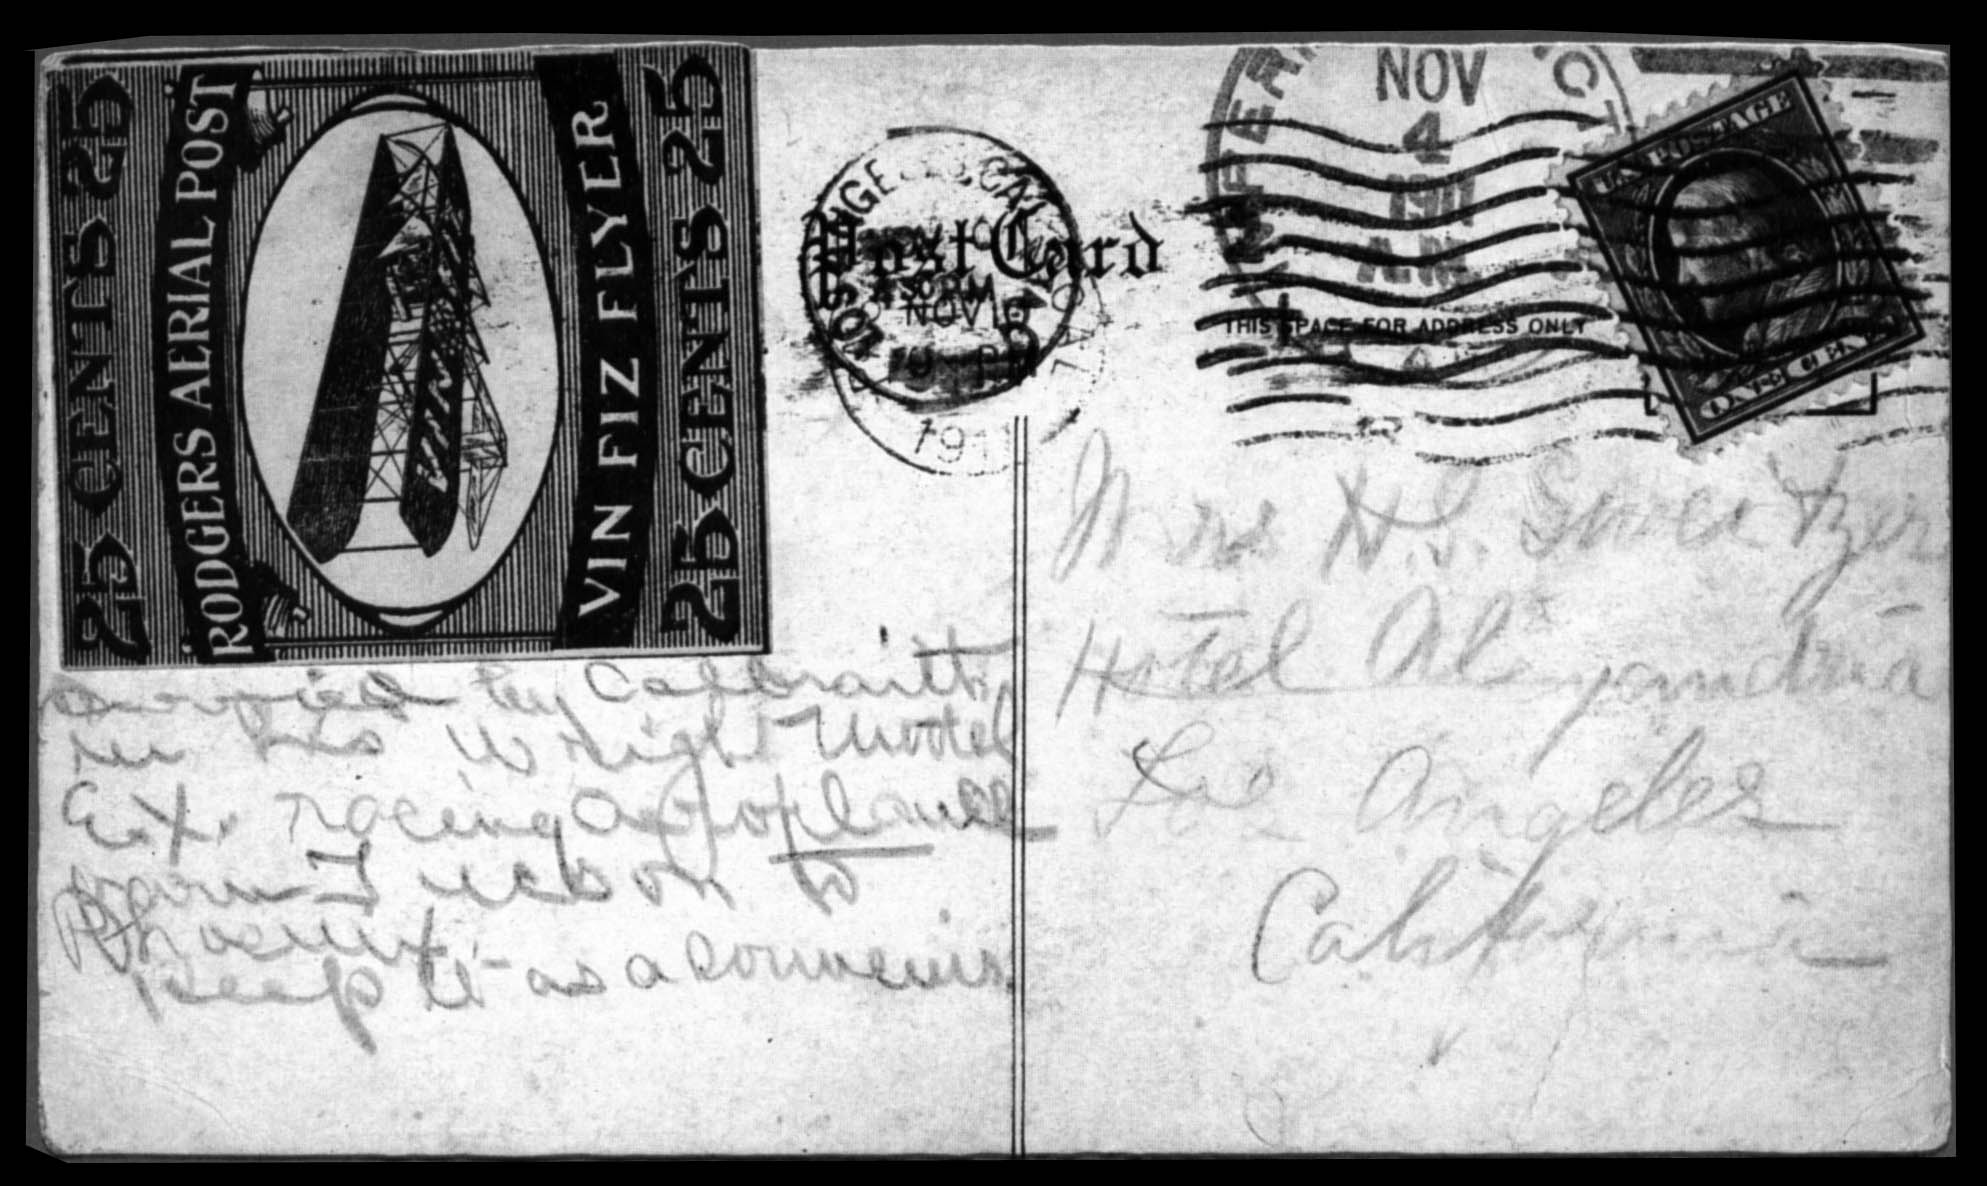 25 CENTS 25
RODGERS AERIAL POST
VIN FIZ FLYER
25 CENTS 25
VIN FIZ
Post Card
NOV 6
9 PM
1911
NOV
4
1911
A.M.
THIS SPACE FOR ADDRESS ONLY
U.S. POSTAGE
ONE CENT
carried by Calbraith
in his Wright Model
Ex. racing aeroplane
from Tucson to
Phoenix
keep it as a souvenir
Mrs H.S. Sweitzer
Hotel Alexandria
Los Angeles
California